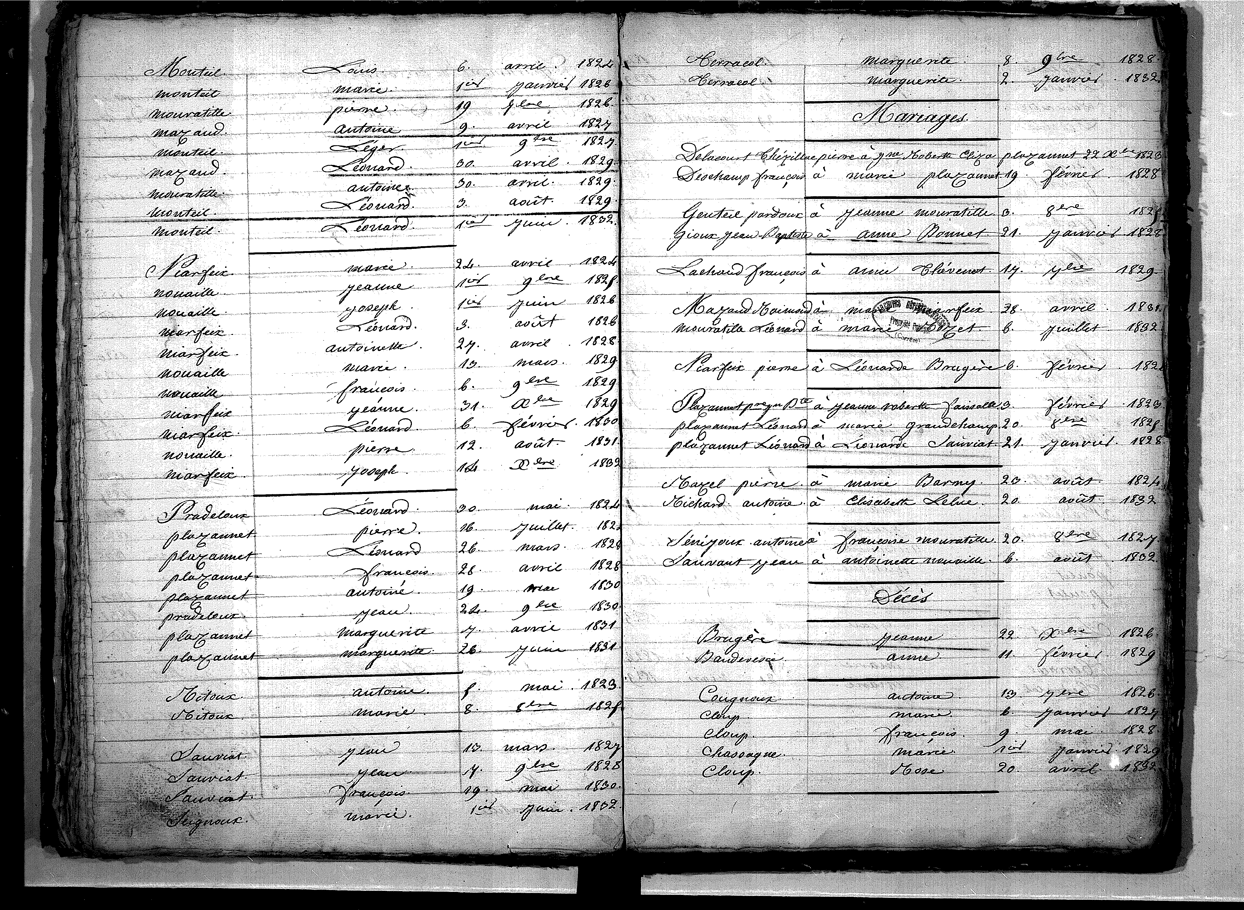 Monteil. Louis. 6. avril. 1824
monteil marie. 1ier janvier 1826
mouratille pierre. 19 9bre 1826.
mazaud. antoine 9. avril. 1827
monteil. Léger. 1ier 9bre 1827.
mazaud. Léonard. 30. avril. 1829.
mouratille antoine 30. avril. 1829.
monteil. Léonard. 3. août. 1829.
monteil. Léonard. 1ier juin. 1832.
Niarfeix marie. 24. avril 1824
nouaille jeanne 1ier 9bre
nouaille joseph. 1ier juin 1826
niarfeix Léonard. 3. août 1826
niarfeix. antoinette 27. avril. 1828
nouaille marie 13. mars. 1829
nouaille françois. 6. 9bre 1829
niarfeix jeanne. 31. Xbre 1829
niarfeix. Léonard 6. février. 1830
nouaille. pierre 12. août. 1831.
niarfeix joseph. 14. Xbre 1832
Pradeloux Léonard. 30. mai. 1824
plazannet pierre. 16. juillet.
plazannet Léonard 26. mars.
plazannet françois 28. avril 1828
plazannet antoine 19. mai 1830
pradeloux jeau. 24. 9bre 1830.
plazannet marguerite 7. avril 1831
plazannet marguerite. 26. juin 1831
Ritoux antoine mai. 1823.
Ritoux. marie. 8. 8bre
Sauviat. jeau 13. mars. 1827
Sauviat. jeau 7. 9bre 1828
Sauviat. françois. 19. mai 1830.
Seignoux. marie. 1ier juin. 1832.
Terracol. marguerite. 8. 9bre 1828
Terracol marguerite. 2. janvier 1832
Mariages.
Delacourt pierre à Roberte Eliza plazannet 22 Xbre 1823
Deschamp françois à marie plazannet 19 février 1828
Genteil pardoux à jeanne mouratille 3. 8bre
Gioux jeau Baptiste à anne Bonnet 21. janvier 1828
Lachaud françois à anne Thévenet 17. 9bre 1829.
Mazaud à niarfeix 28. avril 1831.
mouratille Léonard à marie 6. juillet 1832.
Niarfeix pierre à Léonarde Brugère 6. février
Plazannet à jeanne roberte 3 février 1823
plazannet Léonard à marie grandchamp 20. 8bre
plazannet Léonard à Léonarde Sauviat 21. janvier 1828
Razel pierre à marie Barny 23 août 1824
Richard antoine à Elisabeth 20. août. 1832
Sénéjoux antoine à françoise mouratille 20. 8bre 1827
Sauvant jeau à antoinette nouaille 6. août 1832.
Décès
Brugère jeanne 22 Xbre 1826.
anne 11 février 1829
Cougnoux antoine 13 9bre 1826.
Cloup marie 6 janvier 1827
Cloup françois 9. mai 1828.
Chassagne marie 1ier janvier 1829
Cloup. Rose 20. avril 1832